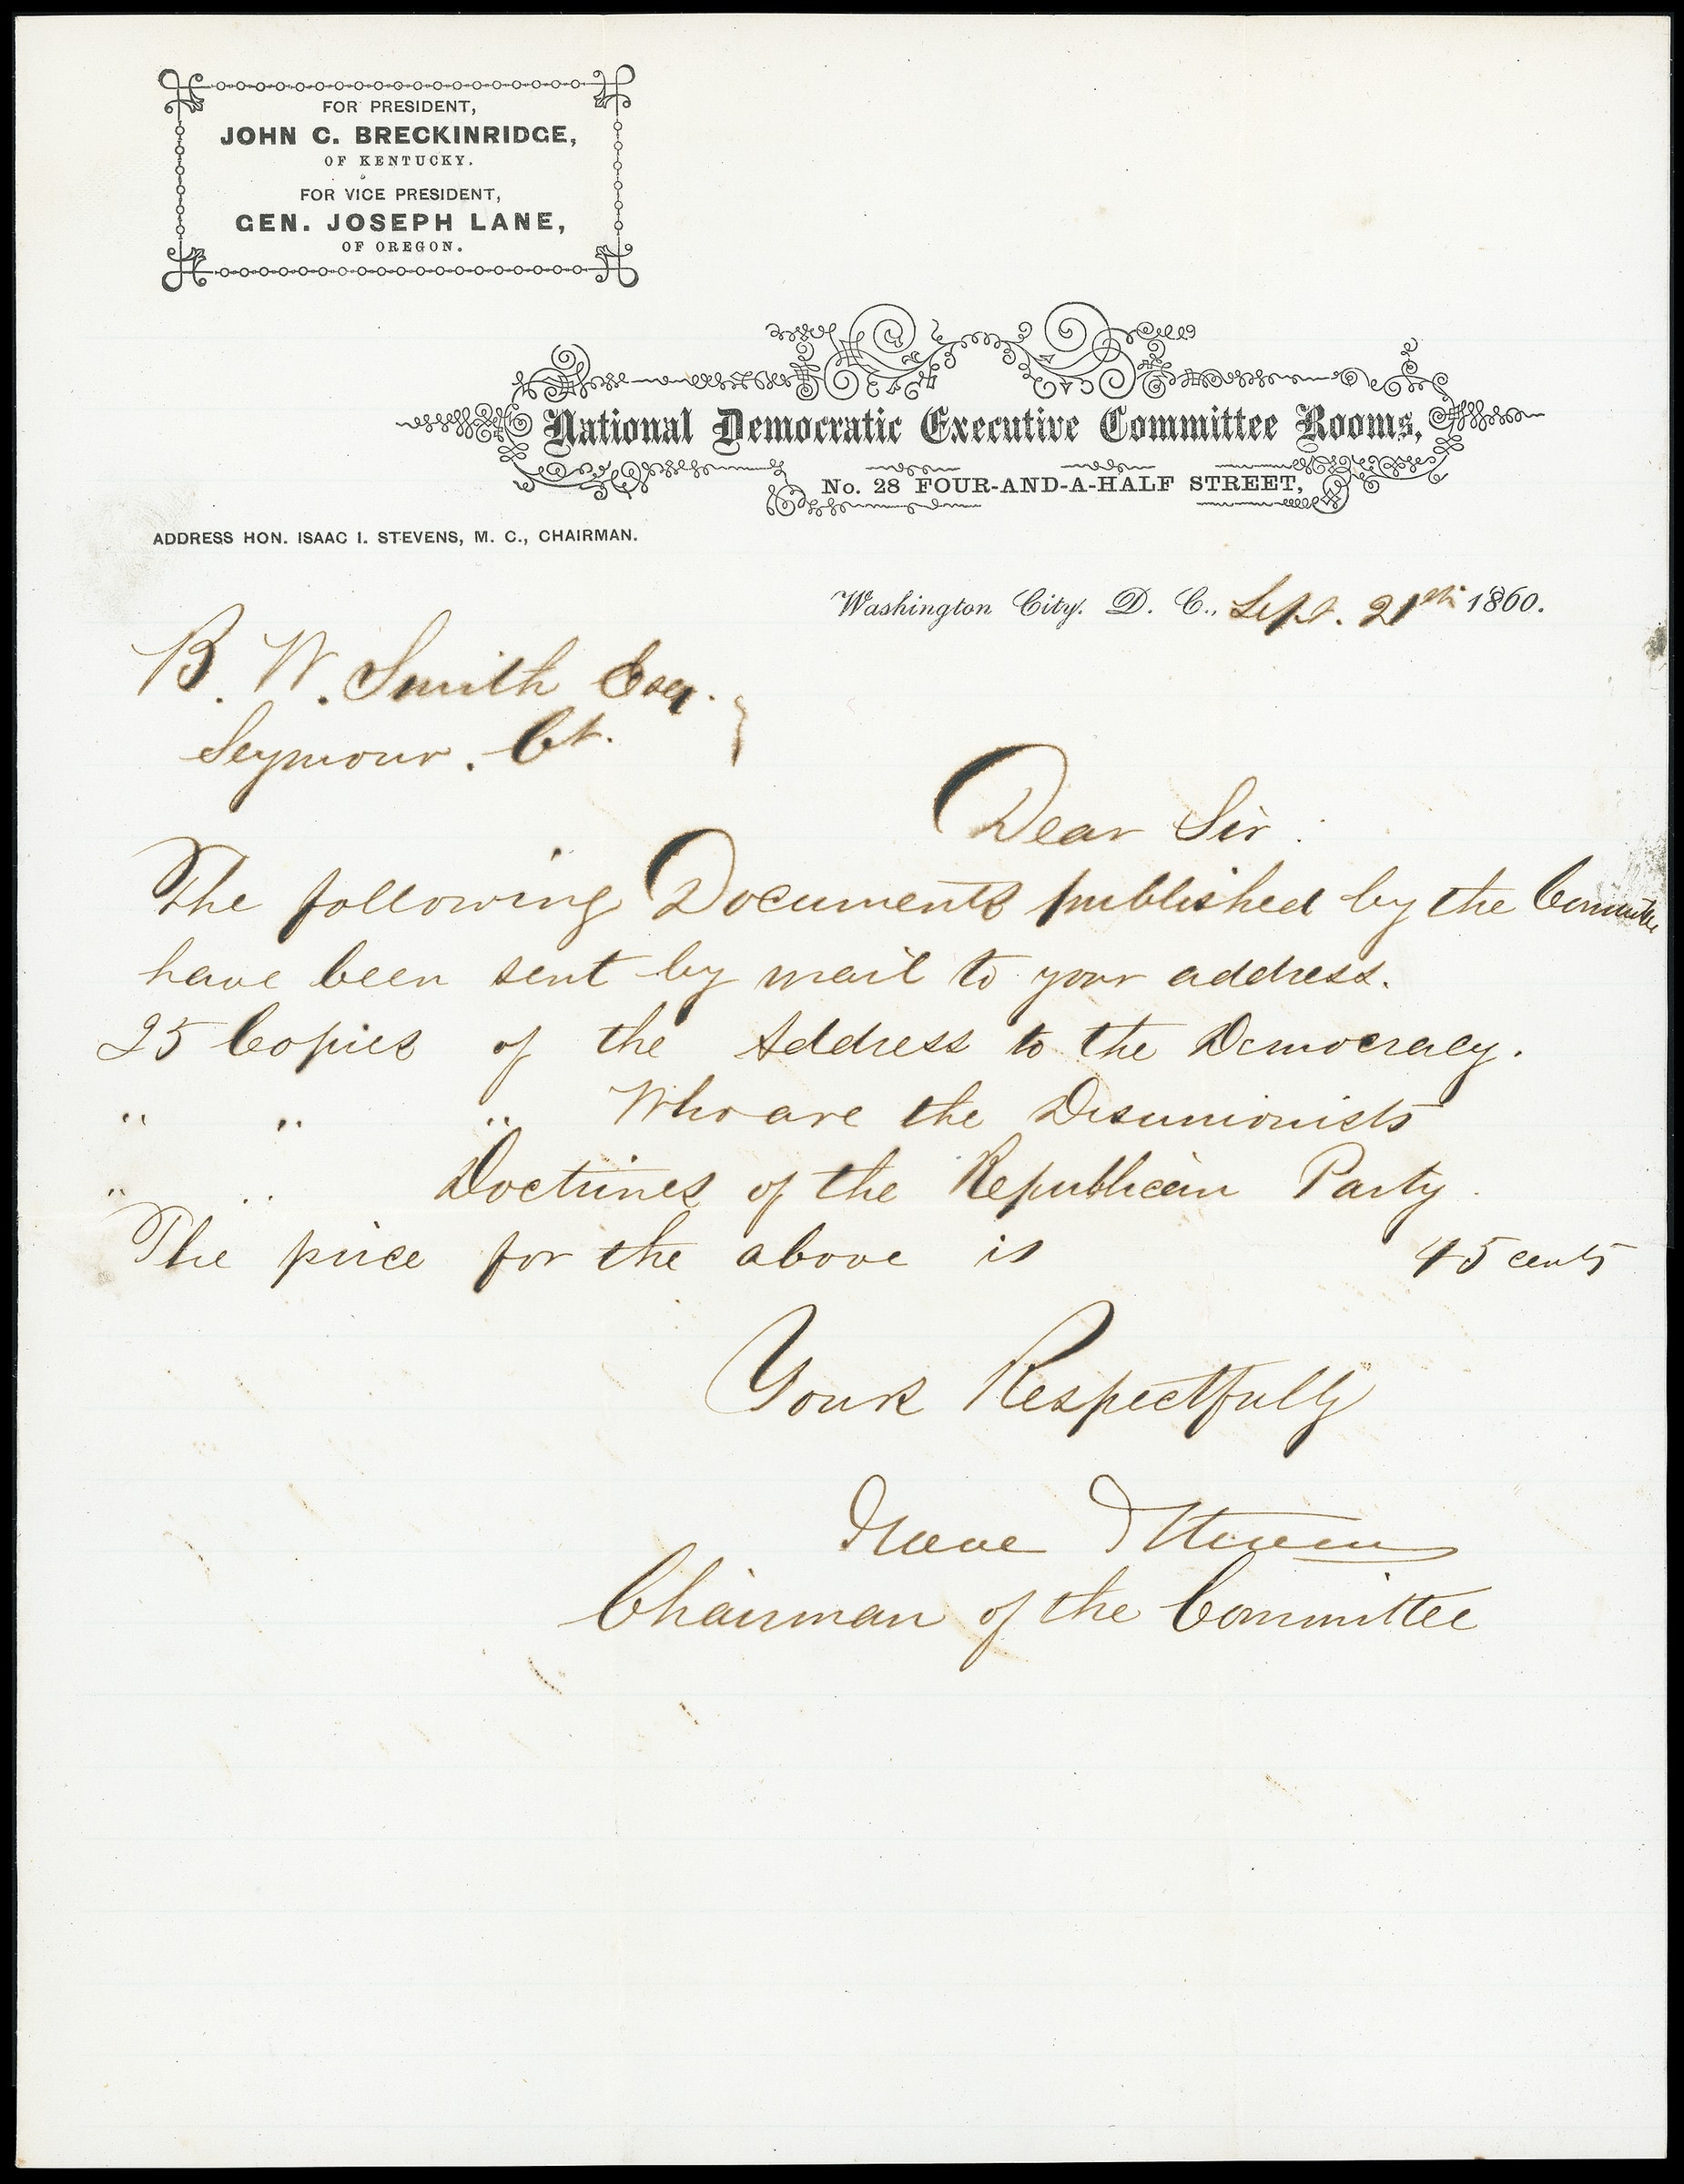 FOR PRESIDENT,
JOHN C. BRECKINRIDGE,
OF KENTUCKY.
FOR VICE PRESIDENT,
GEN. JOSEPH LANE,
OF OREGON.
National Democratic Executive Committee Rooms,
No. 28 FOUR-AND-A-HALF STREET,
ADDRESS HON. ISAAC I. STEVENS, M. C., CHAIRMAN.
Washington City, D. C., Sept. 21st 1860.
B. W. Smith Esq.
Seymour. Ct.
Dear Sir:
The following Documents published by the Committee
have been sent by mail to your address.
25 Copies of the Address to the Democracy.
" " " Who are the Disunionists
" " Doctrines of the Republican Party.
The price for the above is 45 cents
Yours Respectfully
Isaac I Stevens
Chairman of the Committee